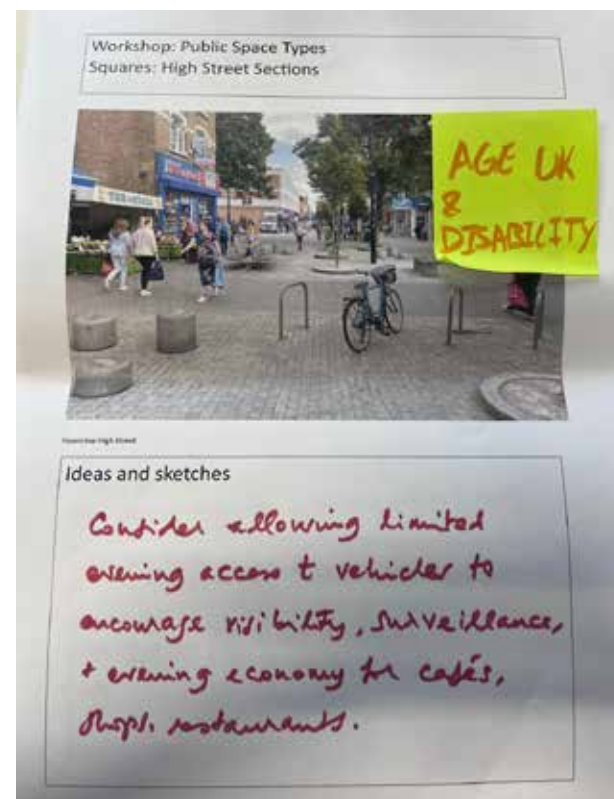 Workshop: Public Space Types
Squares: High Street Sections
AGE UK
&
DISABILITY
Hounslow High Street
Ideas and sketches
Consider allowing limited
evening access t vehicles to
encourage visibility, surveillance,
+ evening economy for cafés,
shops, restaurants.